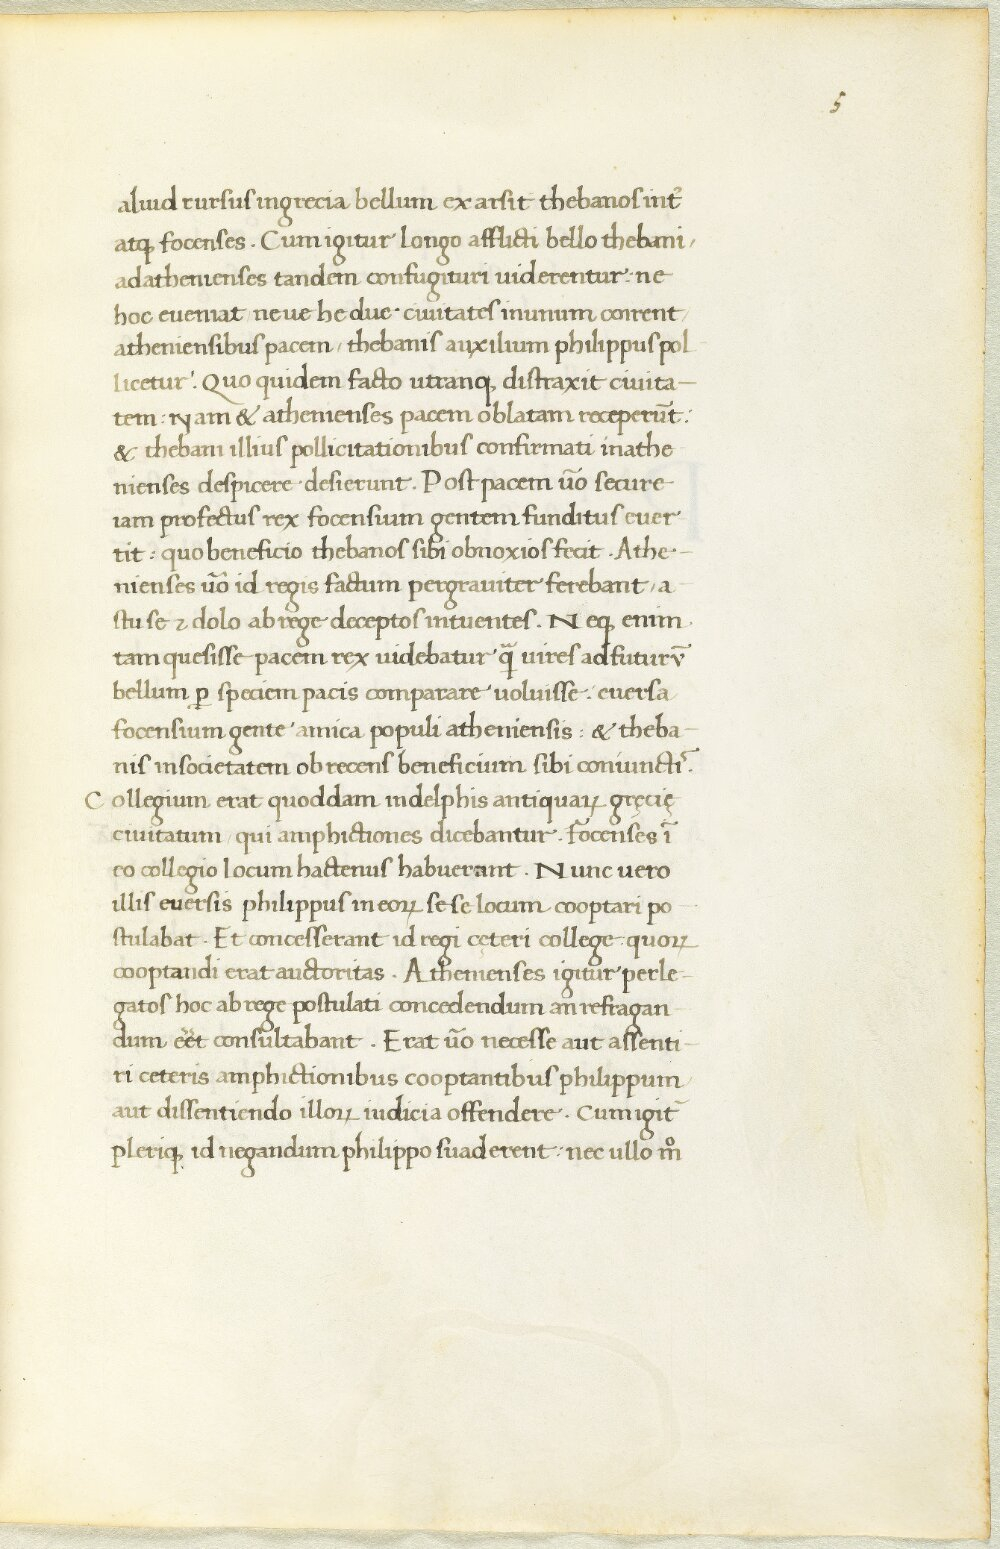 5
aliud rursus in grecia bellum exarsit thebanos int᷑
atq; focenses. Cum igitur longo afflicti bello thebani,
ad athenienses tandem confugituri uiderentur: ne
hoc eueniat neue he due ciuitates in unum coirent,
atheniensibus pacem, thebanis auxilium philippus pol
licetur. Quo quidem facto utranq; distraxit ciuita-
tem: Nam & athenienses pacem oblatam receperūt:
& thebani illius pollicitationibus confirmati in athe
nienses despicere desierunt. Post pacem u̅o secure
iam profectus rex focensium gentem funditus euer
tit: quo beneficio thebanos sibi obnoxios fecit. Athe-
nienses u̅o id regis factum pergrauiter ferebant, a
stu se ⁊ dolo ab rege deceptos intuentes. Neq; enim
tam quesisse pacem rex uidebatur q̃ uires ad futurū
bellum ꝑ speciem pacis comparare uoluisse: euersa
focensium gente amica populi atheniensis: & theba-
nis in societatem ob recens beneficium sibi coniunctı̃.
Collegium erat quoddam in delphis antiquaꝝ gręcię
ciuitatum, qui amphictiones dicebantur. focenses ĩ
eo collegio locum hactenus habuerant. Nunc uero
illis euersis philippus in eoꝝ sese locum cooptari po
stulabat. Et concesserant id regi cęteri college quoꝝ
cooptandi erat auctoritas. Athenienses igitur per le-
gatos hoc ab rege postulati concedendum an refragan
dum eēt consultabant. Erat u̅o necesse aut assenti-
ri ceteris amphictionibus cooptantibus philippum,
aut dissentiendo illoꝝ iudicia offendere. Cum igit᷑
pleriq; id negandum philippo suaderent: nec ullo mͦ